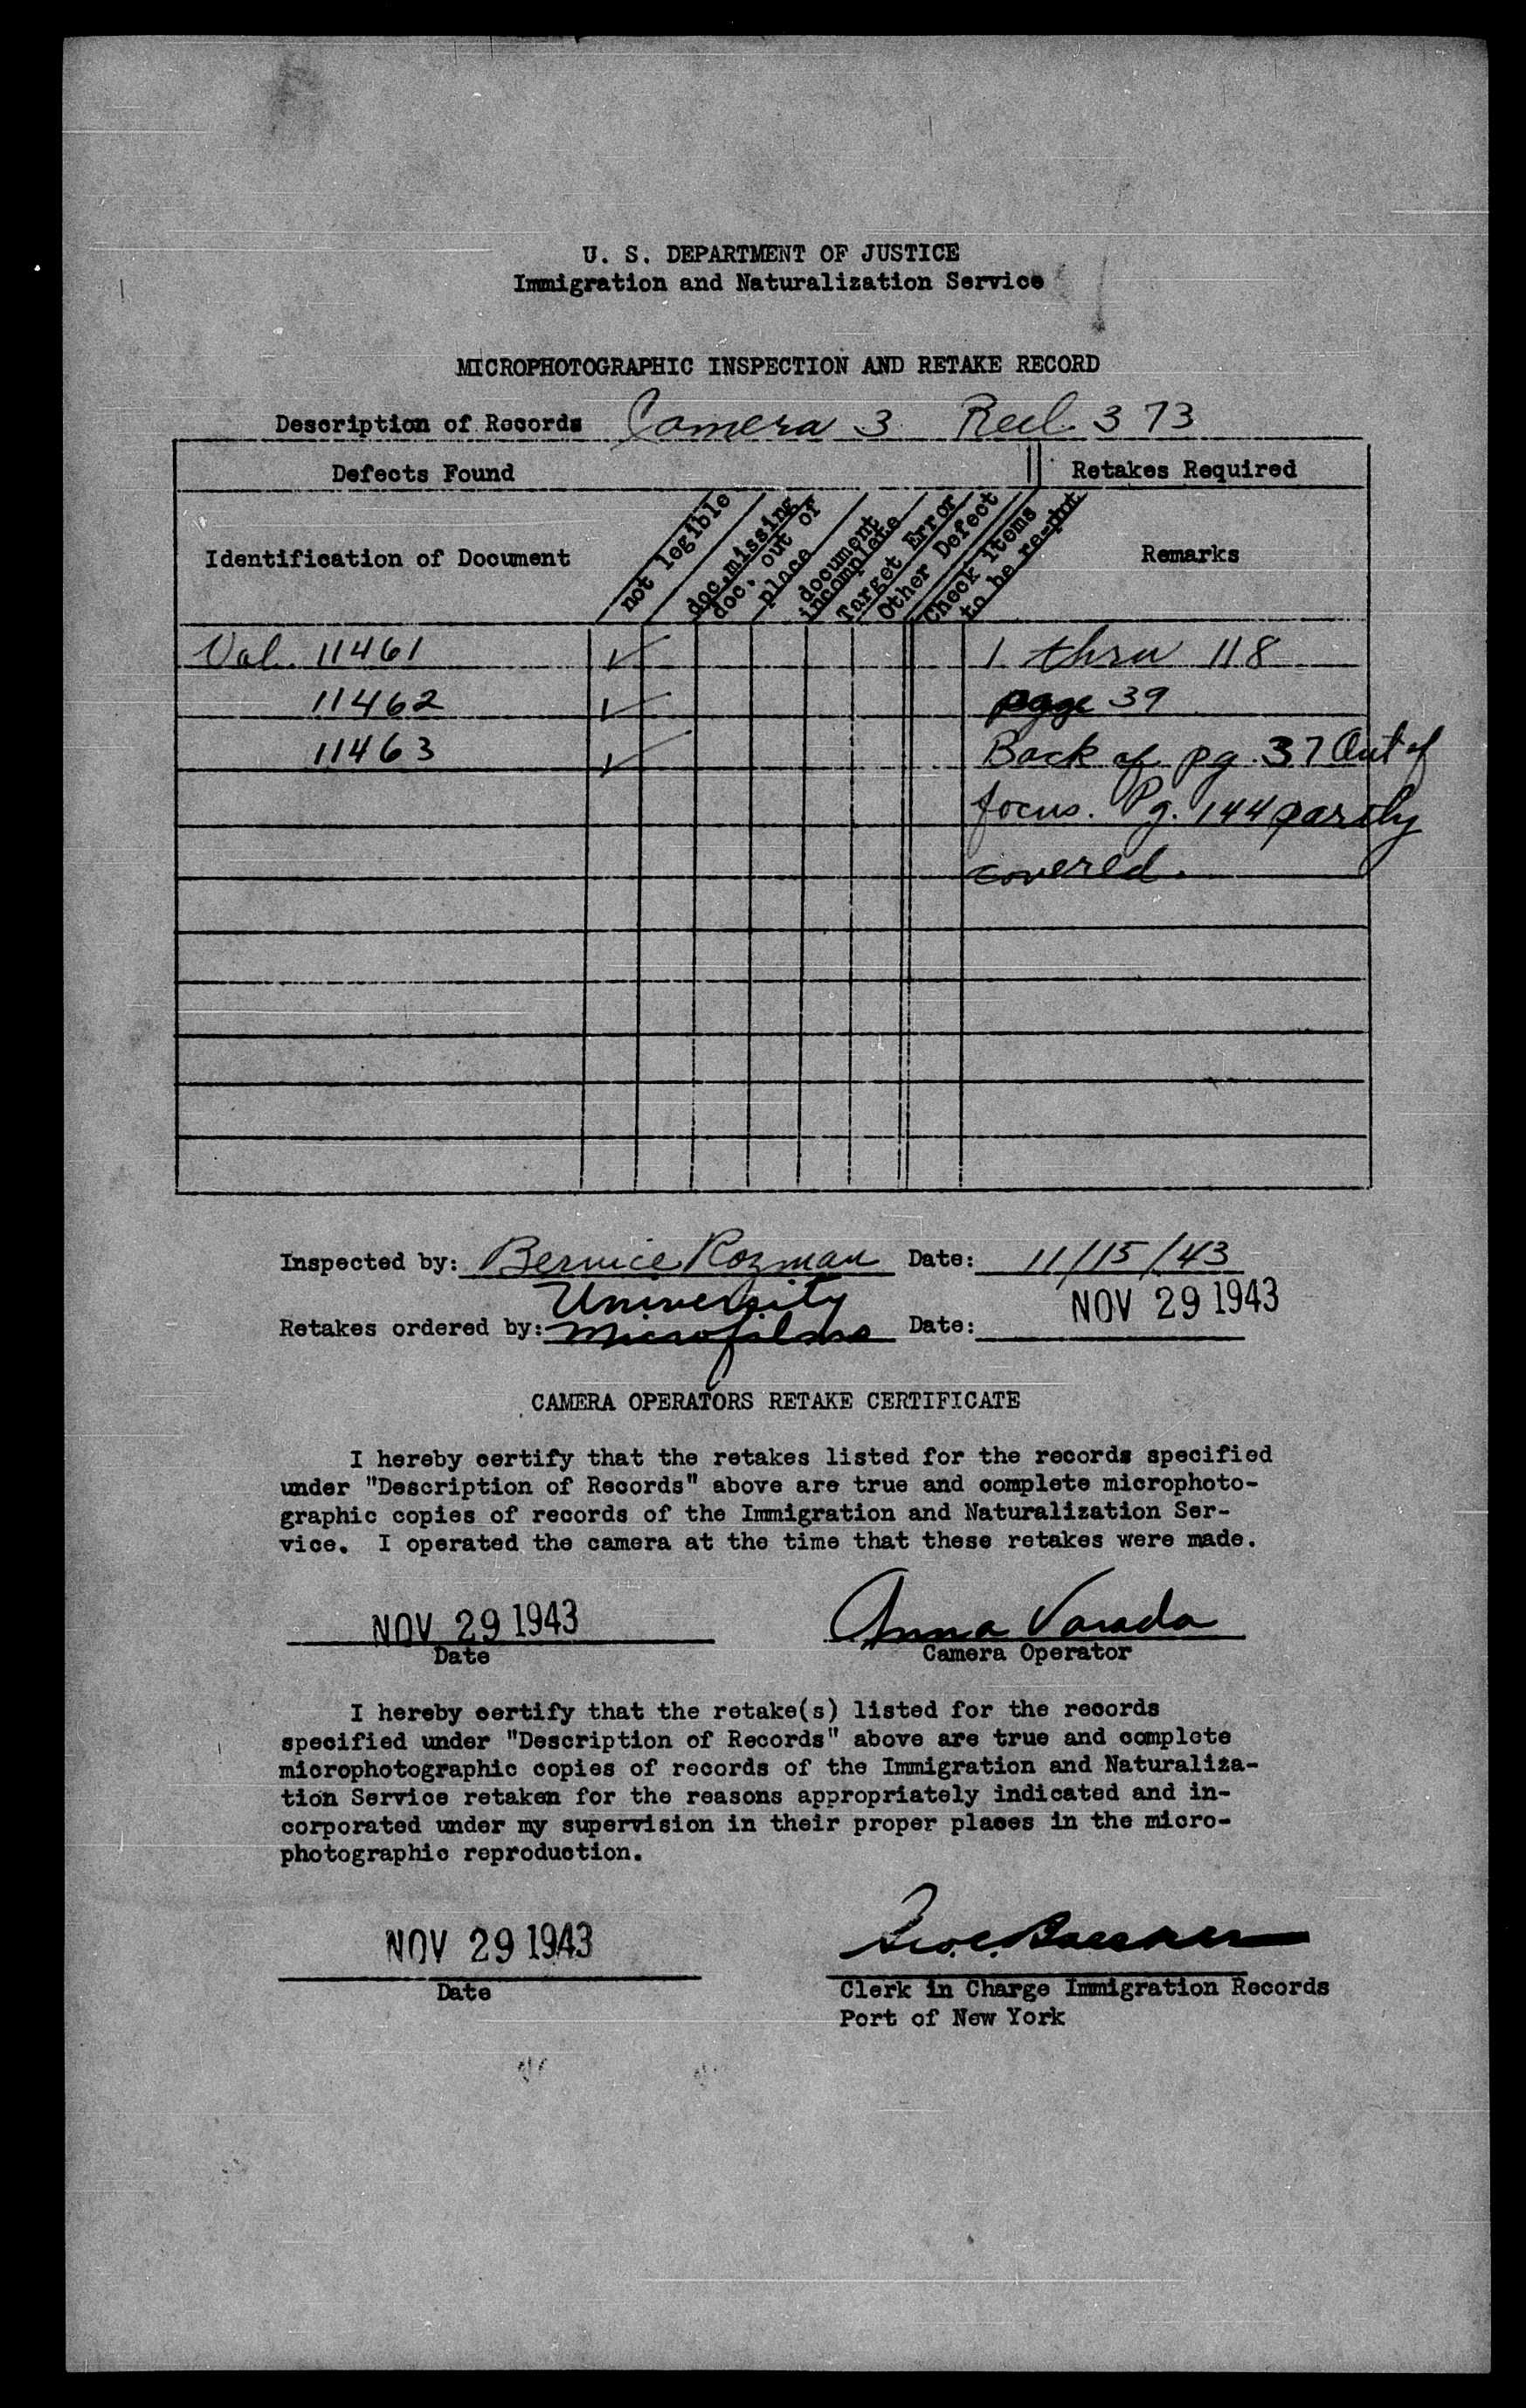 U. S. DEPARTMENT OF JUSTICE
Immigration and Naturalization Service
MICROPHOTOGRAPHIC INSPECTION AND RETAKE RECORD
Description of Records Camera 3 Reel 373
Defects Found
Retakes Required
Identification of Document
not legible
doc. missing
doc. out of
place
document
incomplete
Target Error
Other Defect
Check items
to be re-
Remarks
Vol. 11461 ✓ 1 thru 118
11462 ✓ page 39
11463 ✓ Back of pg. 37 Out of
focus. Pg. 144 partly
covered.
Inspected by: Bernice Rozman Date: 11/15/43
University
Retakes ordered by: Microfilms Date: NOV 29 1943
CAMERA OPERATORS RETAKE CERTIFICATE
I hereby certify that the retakes listed for the records specified
under "Description of Records" above are true and complete microphoto-
graphic copies of records of the Immigration and Naturalization Ser-
vice. I operated the camera at the time that these retakes were made.
NOV 29 1943 Anna Varada
Date Camera Operator
I hereby certify that the retake(s) listed for the records
specified under "Description of Records" above are true and complete
microphotographic copies of records of the Immigration and Naturaliza-
tion Service retaken for the reasons appropriately indicated and in-
corporated under my supervision in their proper places in the micro-
photographic reproduction.
NOV 29 1943
Date Clerk in Charge Immigration Records
Port of New York